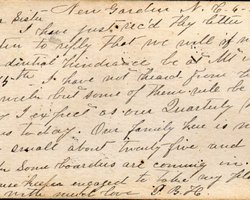 New Garden N.C. 6
Sister
I have just rec'd thy letter
to reply that we will if no
dential hindrance, be at Mt
15th I have not heard from
but some of them will be
I expect as our Quarterly
to day. Our family here is
small about twenty five and
Some boarders are coming in.
engaged to take my pla
with much love